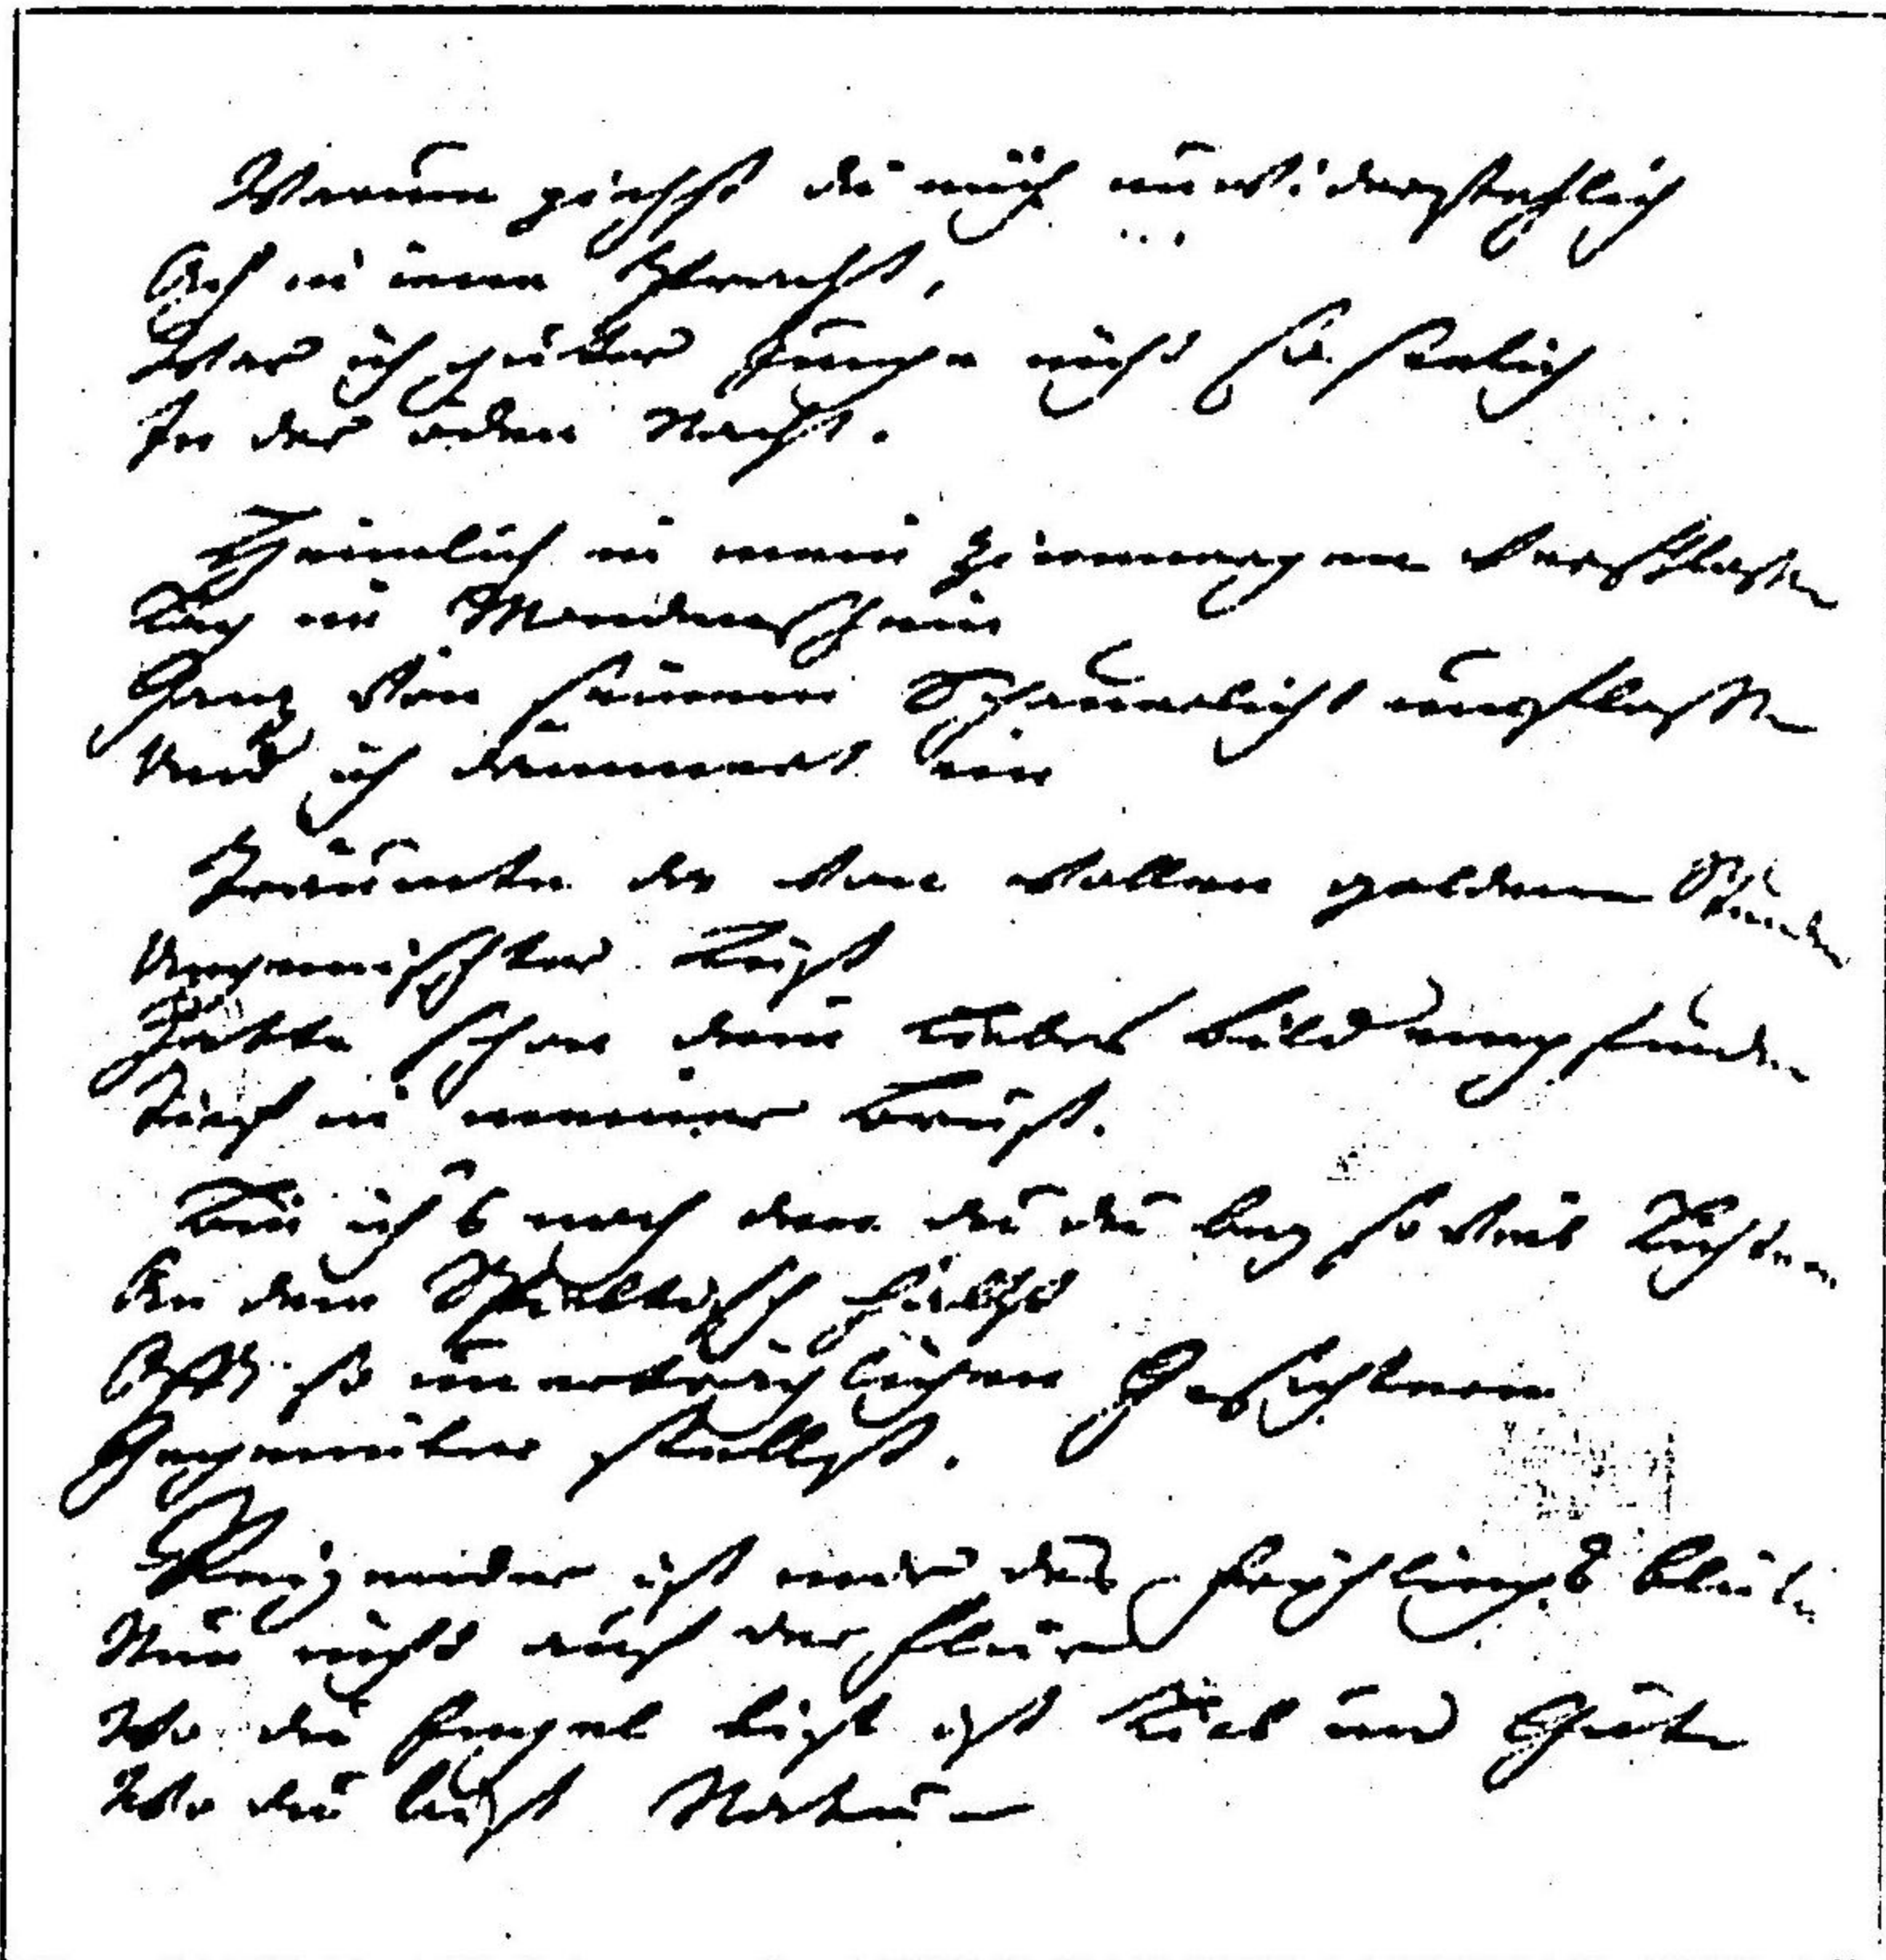 Warum ziehst du mich unwiderstehlich
Ach in iene Pracht,
War ich guter Junge nicht so seelich
In der öden Nacht.
Heimlich in mein Zimmergen verschlossen
Lag im Mondenschein
Ganz von seinem Schauerlicht umflossen
Und ich dämmert ein
Träumte da von vollen goldnen Stunden
Ungemischter Lust
Hatte schon dein liebes Bild empfunden
Tief in meiner Brust.
Bin ichs noch den du bey so viel Lichtern
An dem Spieltisch hältst
Oft so unerträglichen Gesichtern
Gegenüber stellst.
Reizender ist mir des Frühlings Blüte
Nun nicht auf der Flur
Wo du Engel bist ist Lieb und Güte
Wo du bist Natur